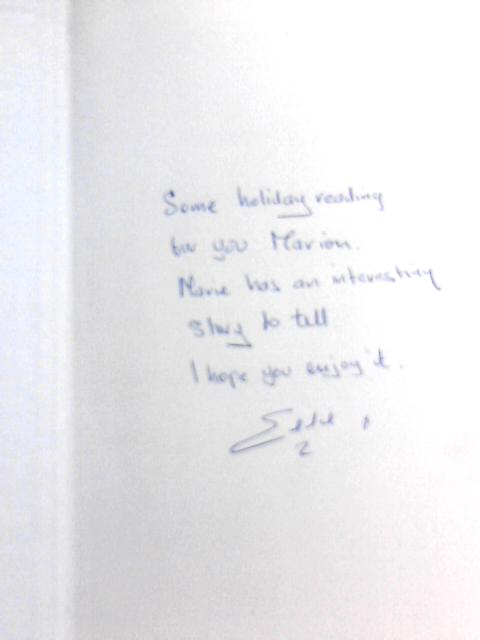 Some holiday reading
for you Marion.
Marie has an interesting
story to tell
I hope you enjoy it.